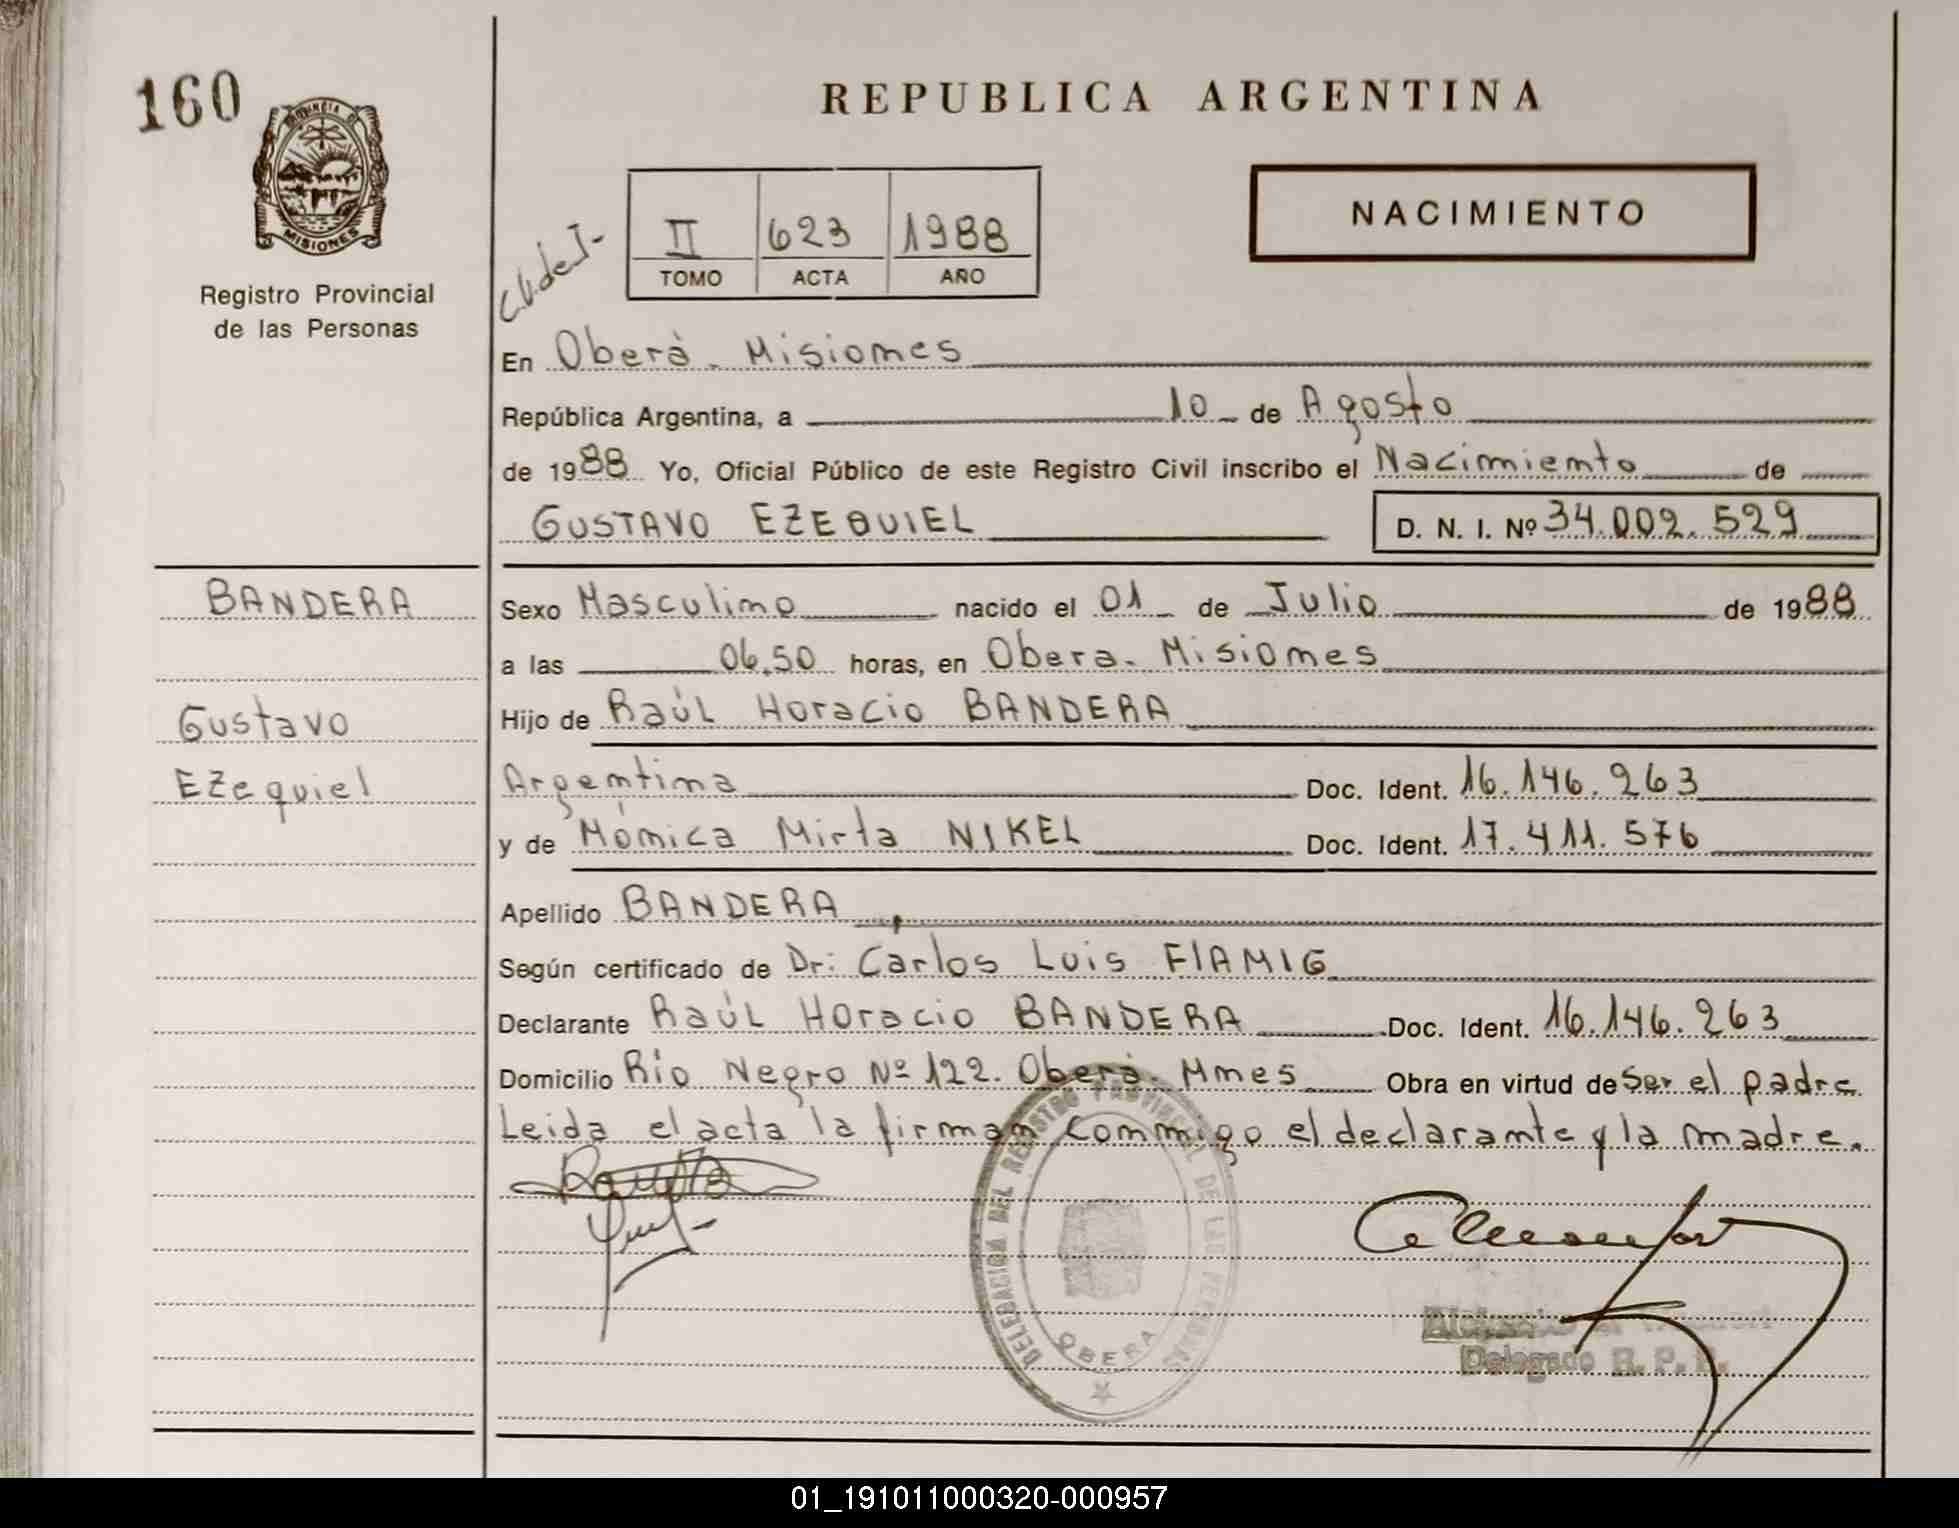 160
PROVINCIA DE
MISIONES
Registro Provincial
de las Personas
REPUBLICA ARGENTINA
NACIMIENTO
II 623 1988
TOMO ACTA AÑO
En Oberá - Misiones
República Argentina, a 10 de Agosto
de 1988 Yo, Oficial Público de este Registro Civil inscribo el Nacimiento de
GUSTAVO EZEQUIEL D. N. I. Nº 34.002.529
BANDERA
Gustavo
Ezequiel
Sexo Masculino nacido el 01 de Julio de 1988
a las 06,50 horas, en Obera - Misiones
Hijo de Raúl Horacio BANDERA
Argentina Doc. Ident. 16.146.263
y de Mónica Mirta NIKEL Doc. Ident. 17.411.576
Apellido BANDERA
Según certificado de Dr: Carlos Luis FIAMIG
Declarante Raúl Horacio BANDERA Doc. Ident. 16.146.263
Domicilio Río Negro Nº 122. Oberá. Mnes Obra en virtud de Ser el padre
Leida el acta la firman conmigo el declarante y la madre.
DELEGACION DEL REGISTRO PROVINCIAL DE LAS PERSONAS
OBERA
Delegado R. P. P.
01_191011000320-000957